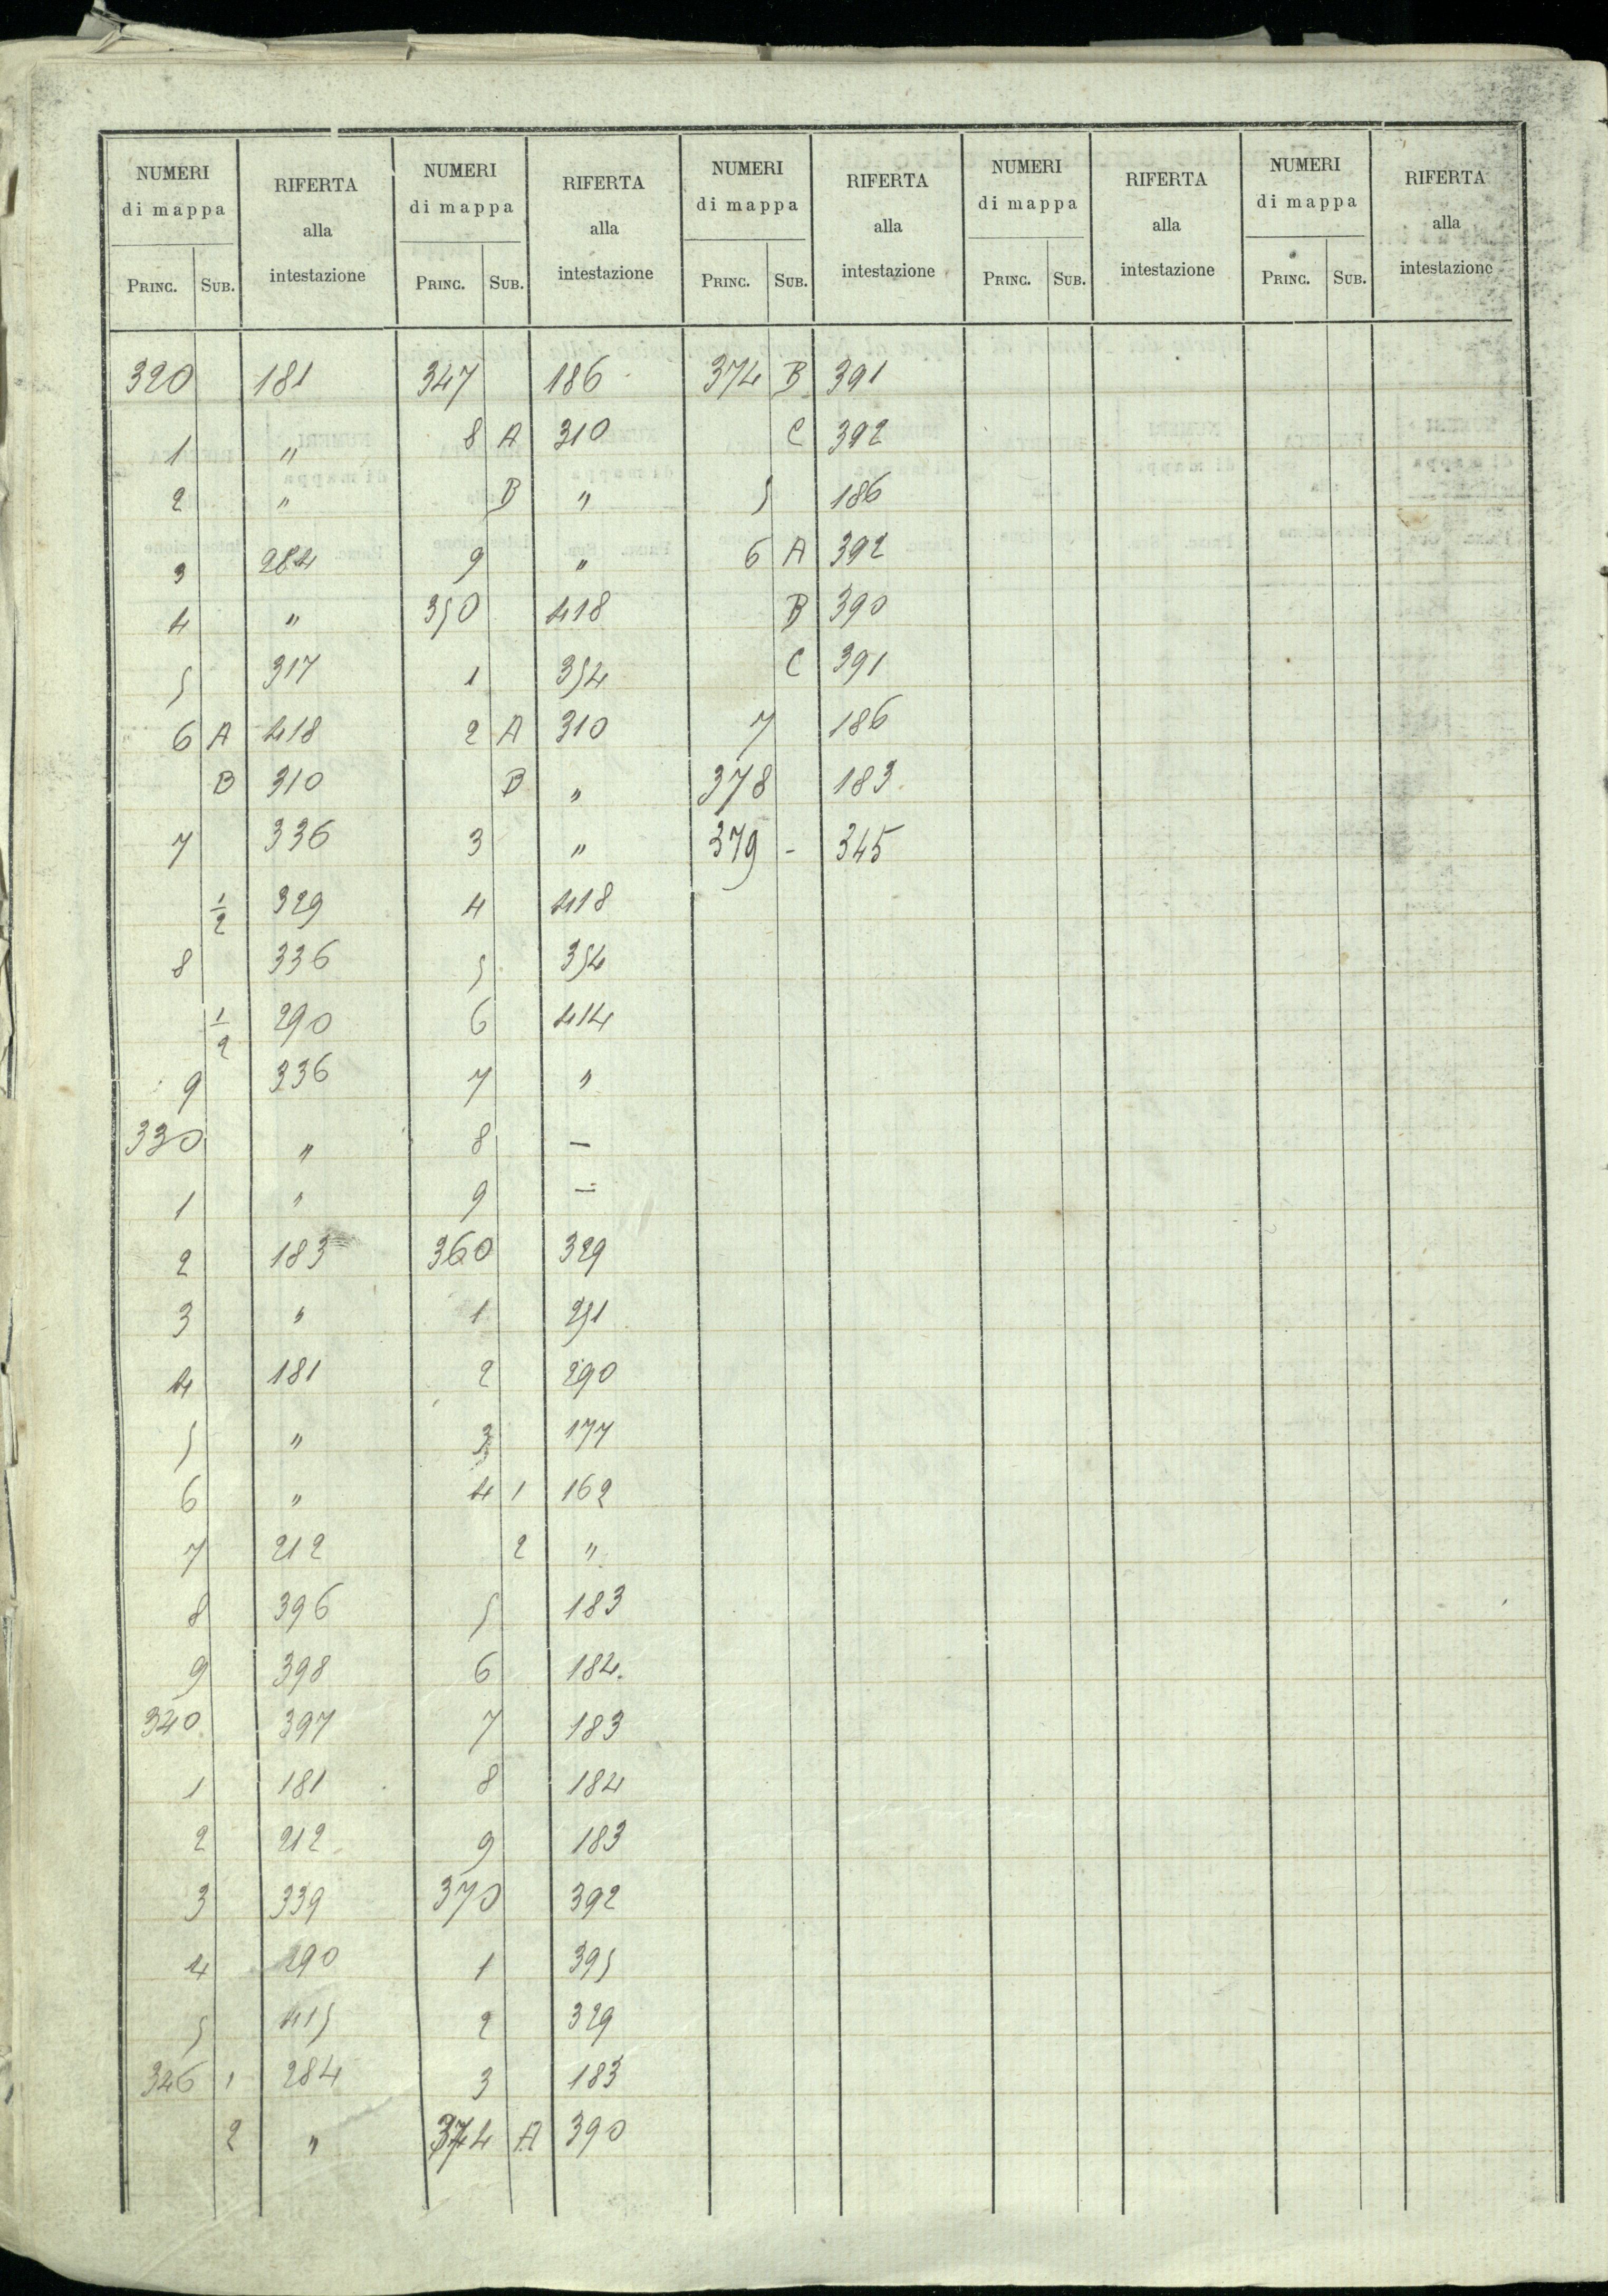 NUMERI di mappa RIFERTA alla intestazione NUMERI di mappa RIFERTA alla intestazione NUMERI di mappa RIFERTA alla intestazione NUMERI di mappa RIFERTA alla intestazione NUMERI di mappa RIFERTA alla intestazione
PRINC. SUB. PRINC. SUB. PRINC. SUB. PRINC. SUB. PRINC. SUB.
320 181 347 186 374 B 391
1 " 8 A 310 C 392
2 " B " 5 186
3 284 9 " 6 A 392
4 " 350 418 B 390
5 317 1 354 C 391
6 A 418 2 A 310 7 186
B 310 B " 378 183
7 336 3 " 379 - 345
1/2 329 4 418
8 336 5 354
1/2 290 6 414
9 336 7 "
330 " 8 —
1 " 9 —
2 183 360 329
3 " 1 251
4 181 2 290
5 " 3 177
6 " 4 1 162
7 212 2 "
8 396 5 183
9 398 6 184
340 397 7 183
1 181 8 184
2 212 9 183
3 339 370 392
4 290 1 395
5 415 2 329
346 1 284 3 183
2 " 374 A 390